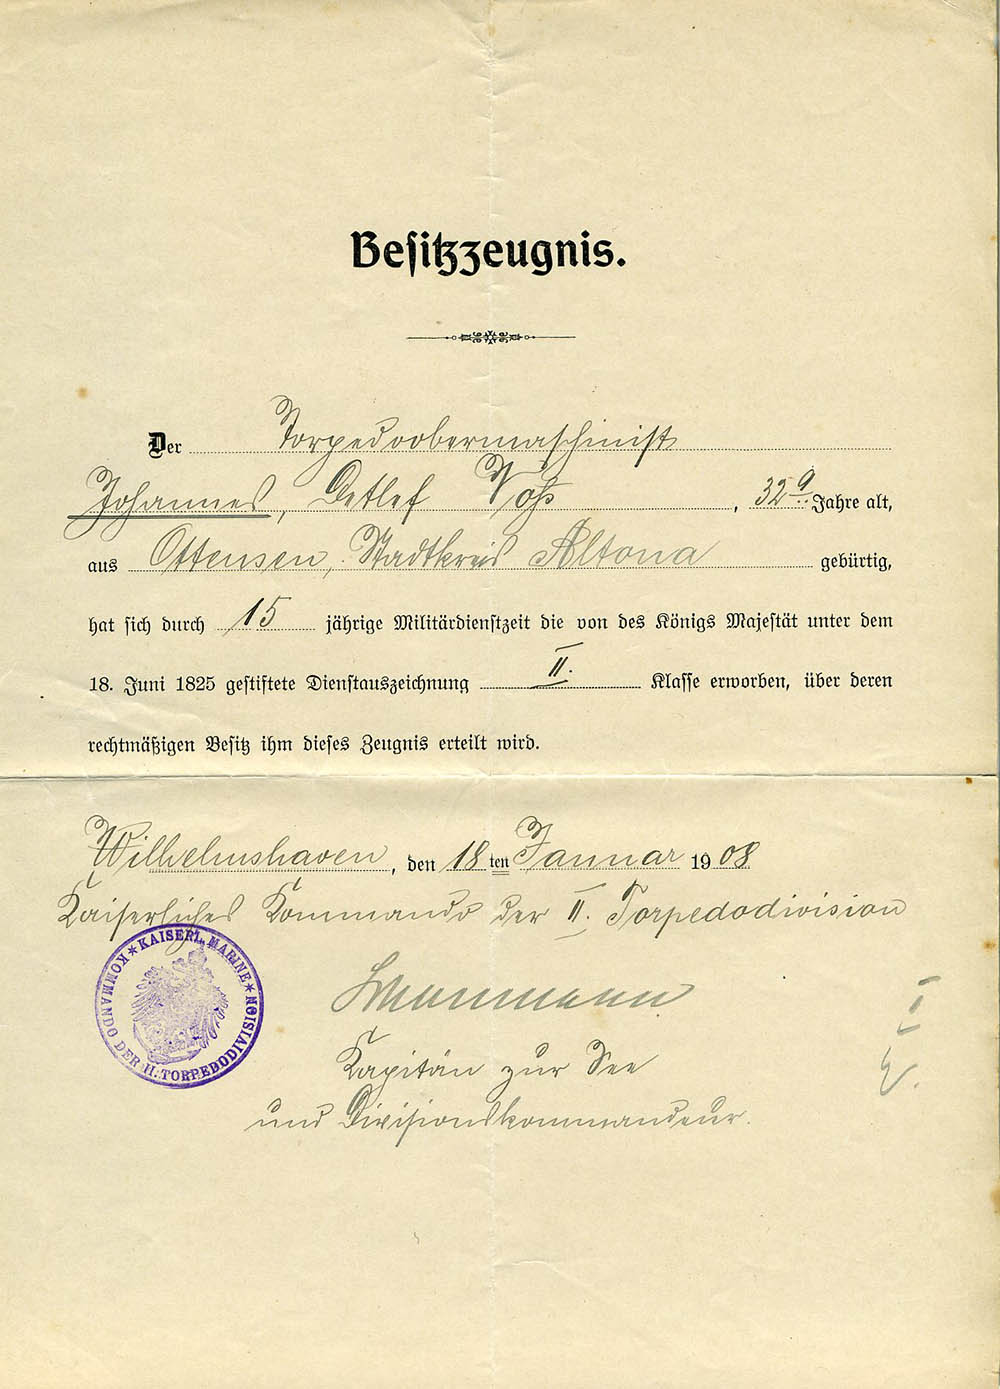 Besitzzeugnis.
Der Torpedoobermaschinist
Johannes, Detlef Voß, 32 9 Jahre alt,
aus Ottensen, Stadtkreis Altona gebürtig,
hat sich durch 15 jährige Militärdienstzeit die von des Königs Majestät unter dem
18. Juni 1825 gestiftete Dienstauszeichnung II. Klasse erworben, über deren
rechtmäßigen Besitz ihm dieses Zeugnis erteilt wird.
Wilhelmshaven, den 18ten Januar 1908
Kaiserliches Kommando der II. Torpedodivision
KAISERL. MARINE
KOMMANDO DER II. TORPEDODIVISION
Kapitän zur See
und Divisionskommandeur.
I